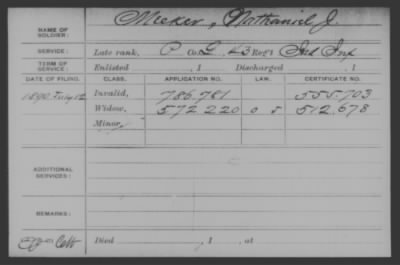 NAME OF SOLDIER: Meeker, Nathaniel J.
SERVICE: Late rank, P Co. L, 43 Reg't Ind Inf
TERM OF SERVICE: Enlisted , 1 Discharged , 1
DATE OF FILING. CLASS. APPLICATION NO. LAW. CERTIFICATE NO.
1890 July Invalid, 786.781 555.703
Widow, 572.220 512.678
Minor,
ADDITIONAL SERVICES:
REMARKS:
Died , 1 , at